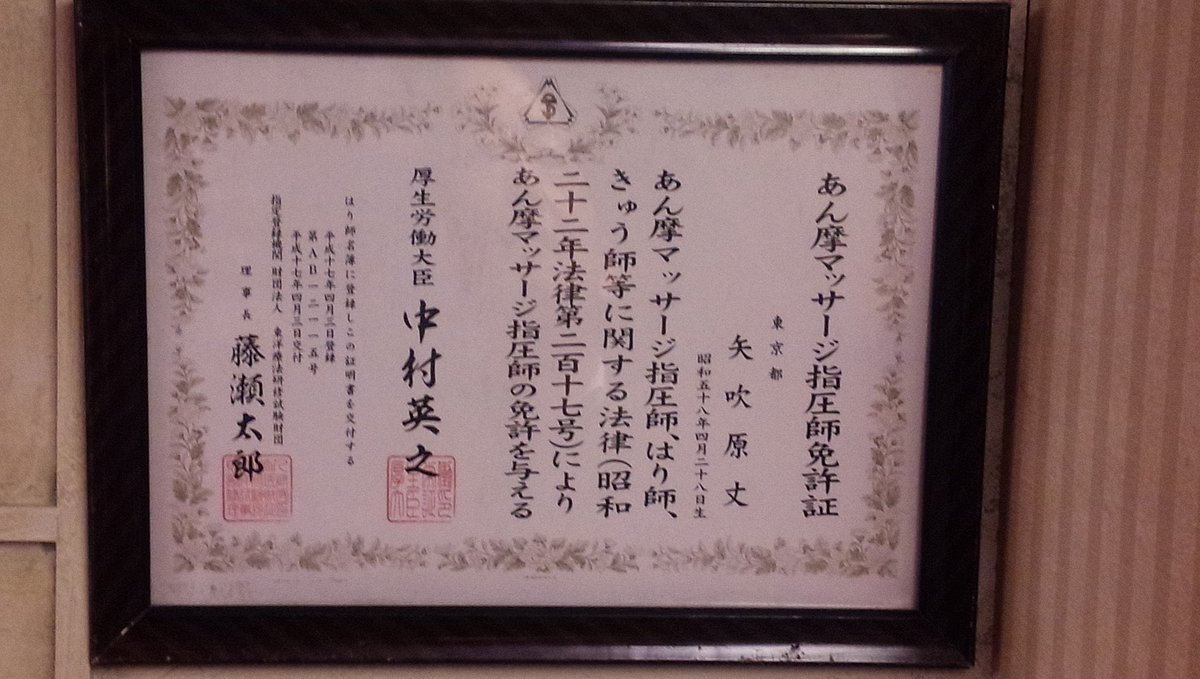 あん摩マッサージ指圧師免許証
東京都
矢吹原丈
昭和五十八年四月二十八日生
あん摩マッサージ指圧師、はり師、
きゅう師等に関する法律(昭和
二十二年法律第二百十七号)により
あん摩マッサージ指圧師の免許を与える
厚生労働大臣 中村英之
はり師名簿に登録しこの証明書を交付する
平成十七年四月三日登録
第AB一二一一五号
平成十七年四月三日交付
指定登録機関 財団法人 東洋療法研修試験財団
理事長 藤瀬太郎